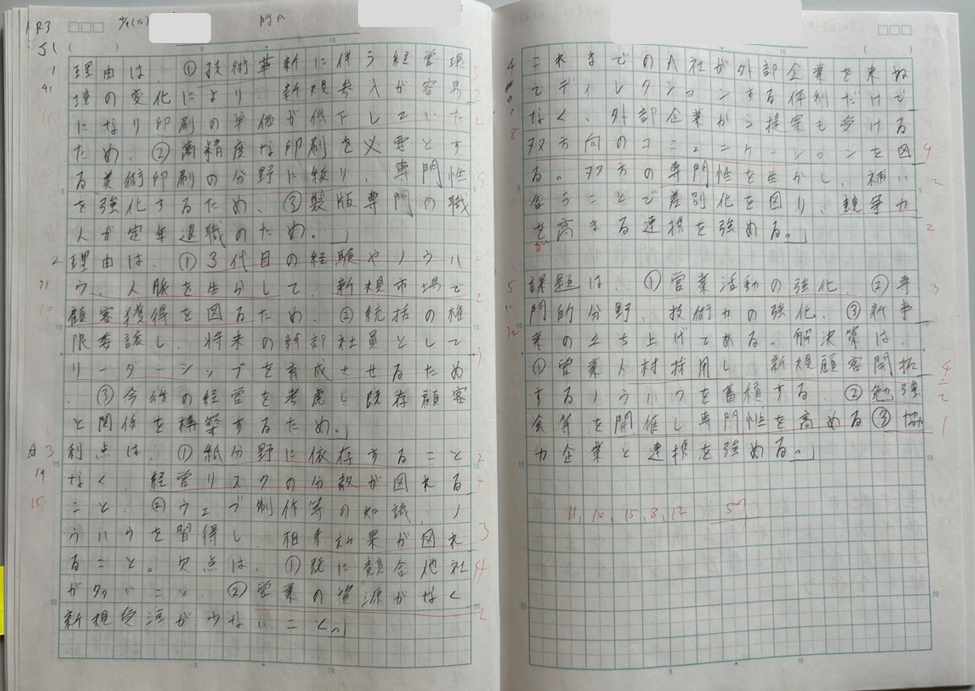 R3
J1
1
理由は、①技術革新に伴う経営環
境の変化により、新規参入が容易
になり印刷の単価が低下していた
ため、②高精度な印刷を必要とす
る美術印刷の分野に絞り、専門性
を強化するため、③製版専門の職
人が定年退職のため。
2
理由は、①3代目の経験やノウハ
ウ、人脈を生かして、新規市場で
顧客獲得を図るため、②統括の権
限委譲し、将来の幹部社員として
リーダーシップを育成させるため
、③今後の経営を考慮し既存顧客
と関係を構築するため。
3
利点は、①紙分野に依存すること
なく、経営リスクの分散が図れる
こと、②ウェブ制作等の知識、ノ
ウハウを習得し、相乗効果が図れ
ること。欠点は、①既に競合他社
が多いこと、②営業の資源がなく
新規受注が少ないこと。
15
4
これまでのA社が外部企業を束ね
てディレクションする体制だけで
なく、外部企業から提案も受ける
双方向のコミュニケーションを図
る。双方の専門性を生かし、補い
合うことで差別化を図り、競争力
を高まる連携を強める。
8
5
課題は、①営業活動の強化、②専
門的分野、技術力の強化、③新事
業の立ち上げである。解決策は、
①営業人材採用し、新規顧客開拓
するノウハウを蓄積する、②勉強
会等を開催し専門性を高める③協
力企業と連携を強める。
12
11、10、15、8、12 57